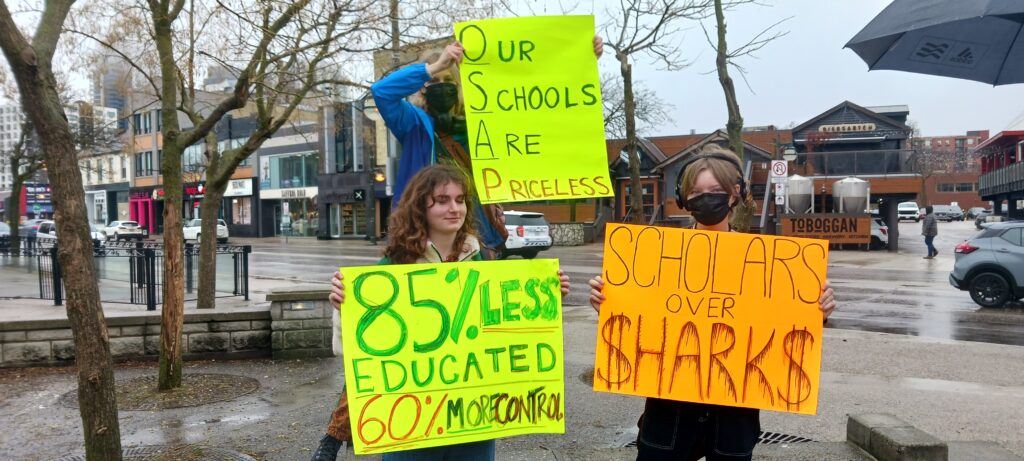 OUR
SCHOOLS
ARE
PRICELESS
85% LESS
EDUCATED
60% MORE CONTROL
SCHOLARS
OVER
$HARK$
BIERGARTEN
TOBOGGAN